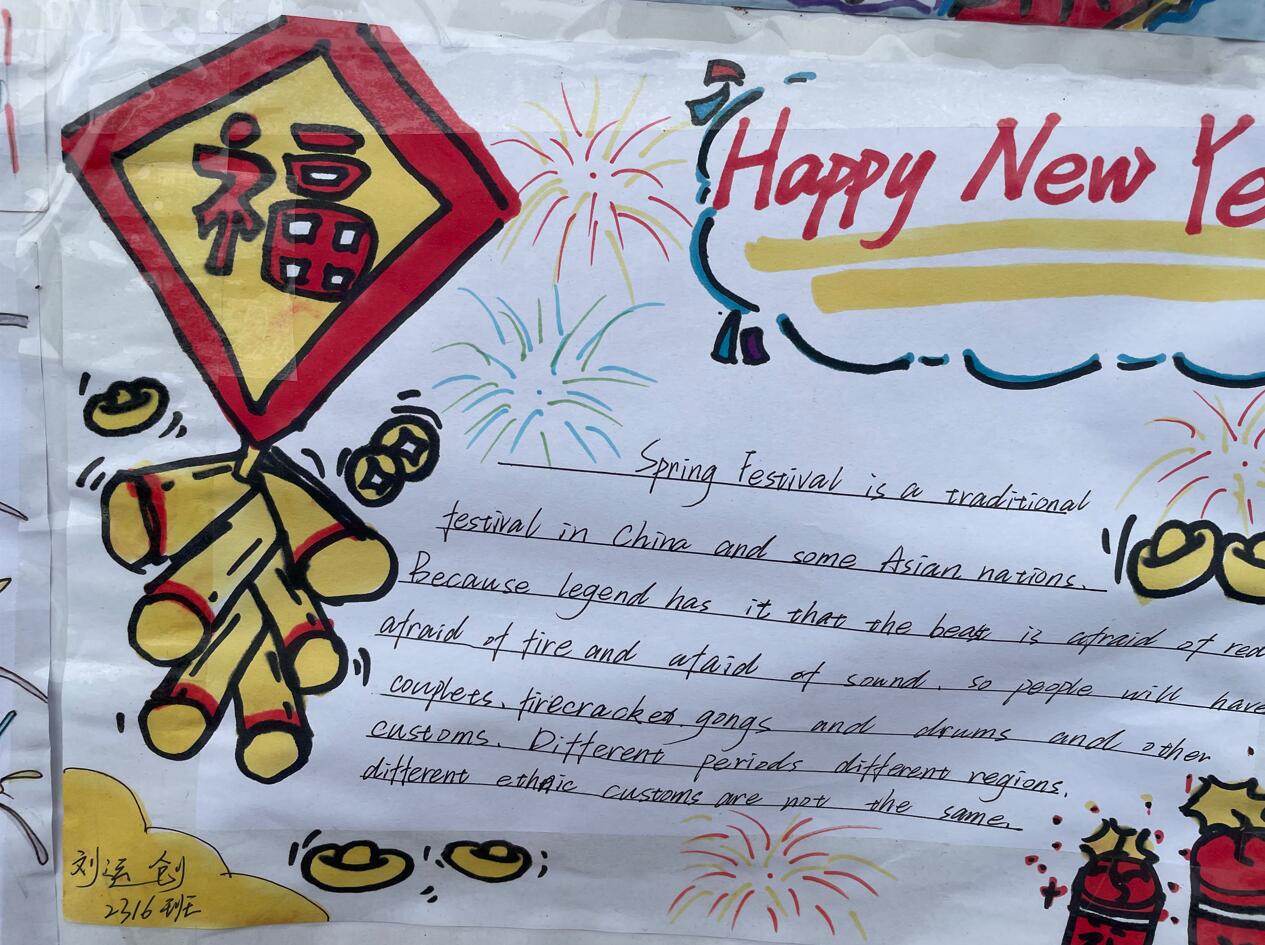 福
Happy New Ye
Spring Festival is a traditional
festival in China and some Asian nations.
Because legend has it that the beat is afraid of red
afraid of fire and afaid of sound. so people will have
couplets. firecracker gongs and drums and other
customs. Different periods different regions.
different ethnic customs are not the same.
刘运创
2316班